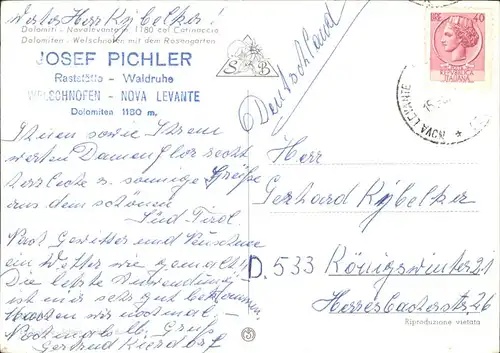 Werter Herr Kybelker!
Dolomiti - Novalevante m 1180 col Catinaccio
Dolomiten - Welschnofen mit dem Rosengarten
JOSEF PICHLER
Raststätte - Waldruhe
WELSCHNOFEN - NOVA LEVANTE
Dolomiten 1180 m.
Ihnen sowie Ihrem
werten Damenflor recht
herzliche u. sonnige Grüße
aus dem schönen
Süd Tirol.
Nach Gewitter und
ein Wetter wie gemalt!
Die letzte
ist mir sehr gut bekommen
nochmal
Nochmals Gruß
Gertrud Kierdorf
S B
Deutschland
LIRE 40
REPUBBLICA
ITALIANA
NOVA LEVANTE
Herr
Gerhard Kybelker
D. 533 Königswinter 21
Herresbacherstr. 26
Riproduzione vietata